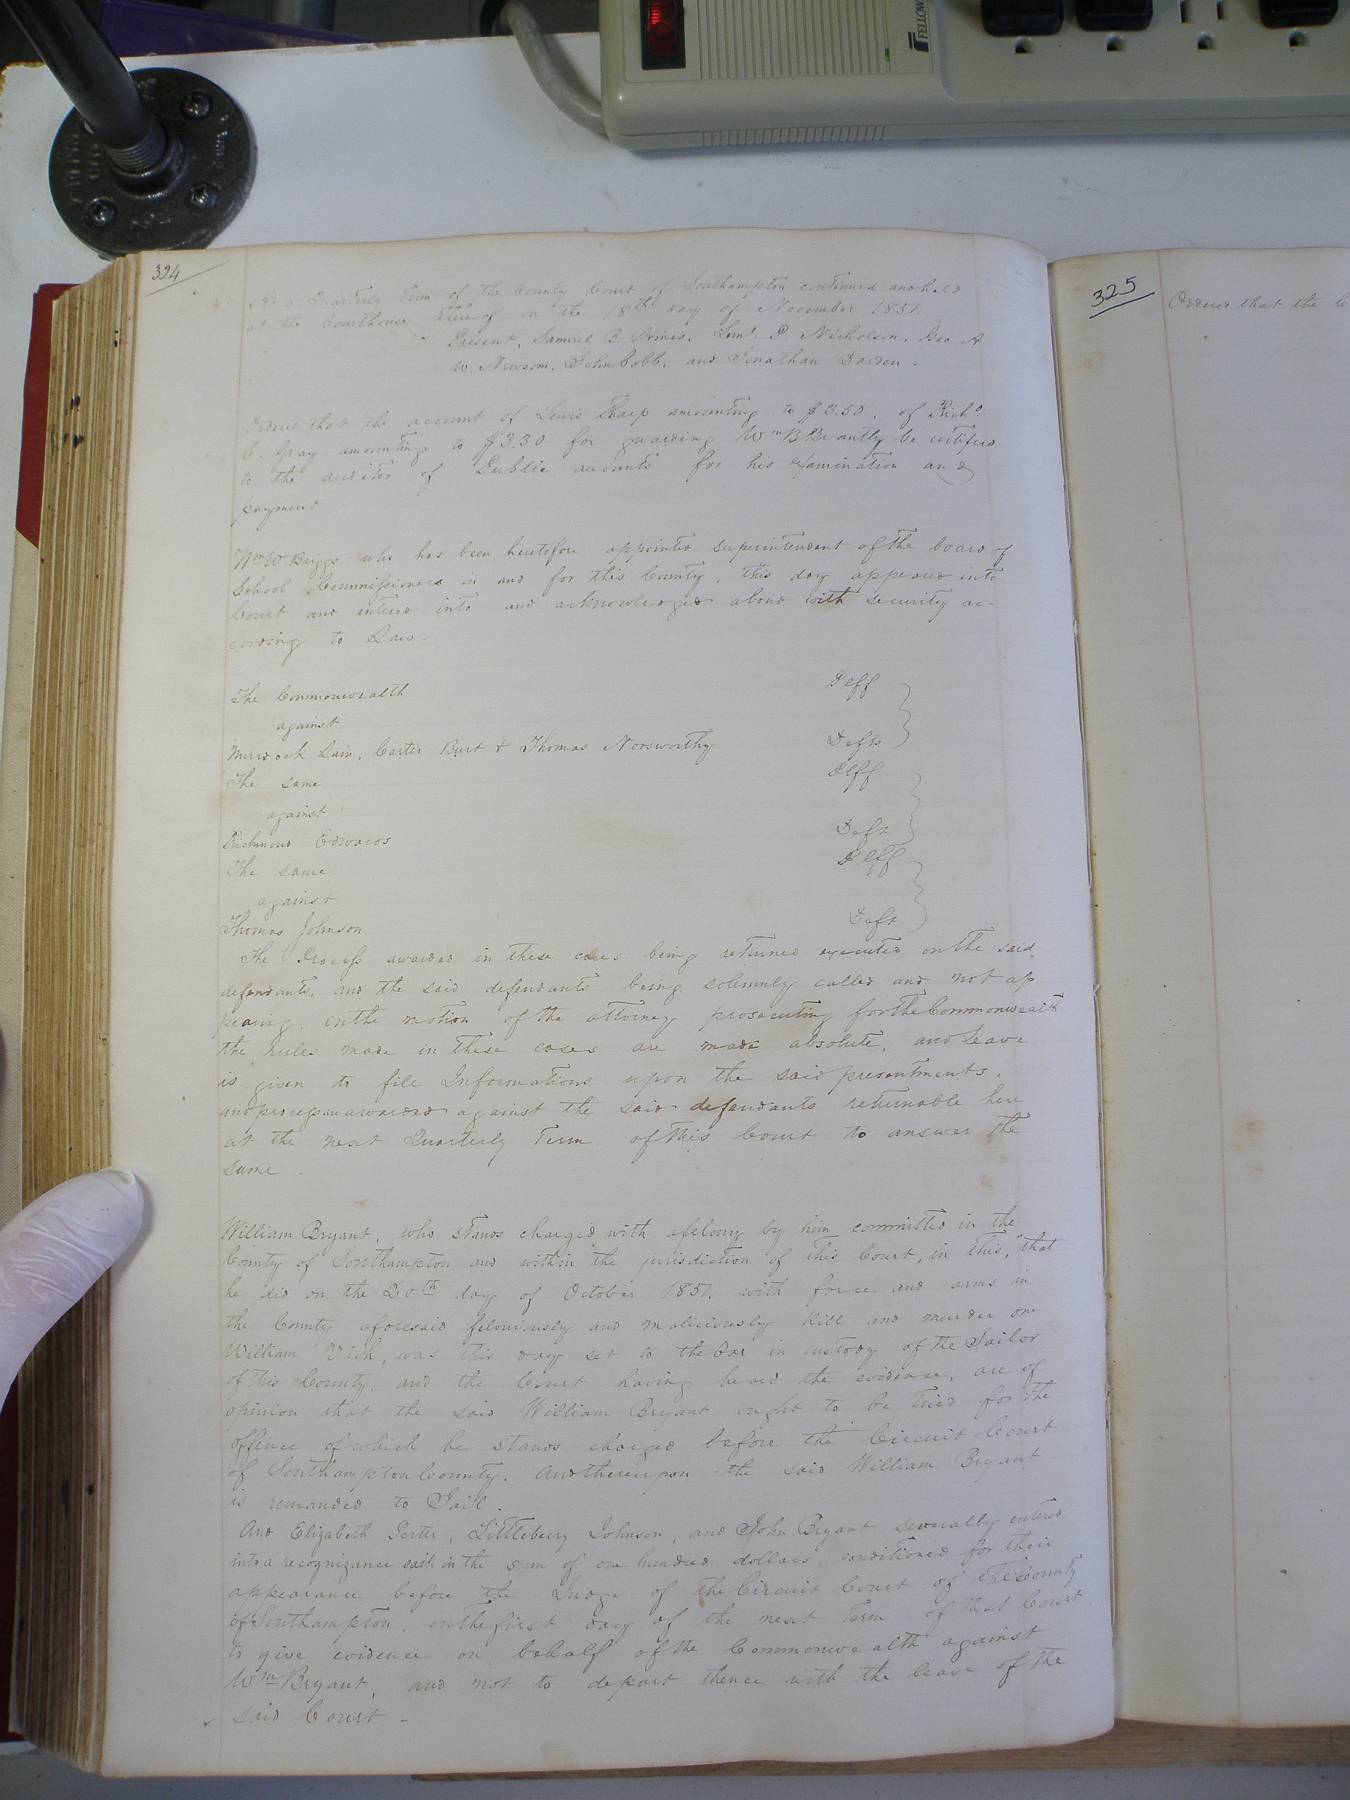 FELLOW
324
At a Quarterly Term of the County Court of Southampton continued and held
at the Courthouse thereof on the 18th day of November 1851.
Present, Samuel B. Hines, Leml. P. Nicholson, Geo A
W. Newsom, John Cobb, and Jonathan Darden.
Ordered that the account of Lewis Sharp amounting to $3.50. of Richd.
C. Gray amounting to $3.30 for guarding Wm B Brantly be certified
to the auditor of Public accounts for his examination and
payment
Wm W Briggs who has been heretofore appointed superintendent of the board of
School Commissioners in and for this County, this day appeared into
Court and entered into and acknowledged abond with security ac-
cording to Law.
The Commonwealth Plff
against
Murdock Lain, Carter Burt & Thomas Norsworthy Defts
The same Plff
against
Richmond Edwards Deft
The same Plff
against
Thomas Johnson Deft
The Process awarded in these cases being returned executed on the said
defendants, and the said defendants being solemnly called and not ap
pearing, on the motion of the attorney prosecuting for the Commonwealth
the rules made in these cases are made absolute, and Leave
is given to file Informations upon the said presentments.
and process awarded against the said defendants returnable here
at the next Quarterly Term of this Court to answer the
same.
William Bryant, who stands charged with afelony by him committed in the
County of Southampton and within the jurisdiction of this Court, in this, "that
he did on the 20th day of October 1851. with force and arms in
the County aforesaid feloniously and maliciously kill and murder one
William Vick, was this day set to the bar in custody of the Jailor
of this County, and the Court having heard the evidence, are of
opinion that the said William Bryant ought to be tried for the
offence of which he stands charged before the Circuit Court
of Southampton County. And thereupon the said William Bryant
is remanded to Jail.
And Elizabeth Porter, Littlebury Johnson, and John Bryant severally entered
into a recognizance each in the sum of one hundred dollars conditioned for their
appearance before the Judge of the Circuit Court of the County
of Southampton, on the first day of the next Term of that Court
to give evidence on behalf of the Commonwealth against
Wm Bryant, and not to depart thence with the leave of the
said Court -
325
Ordered that the C